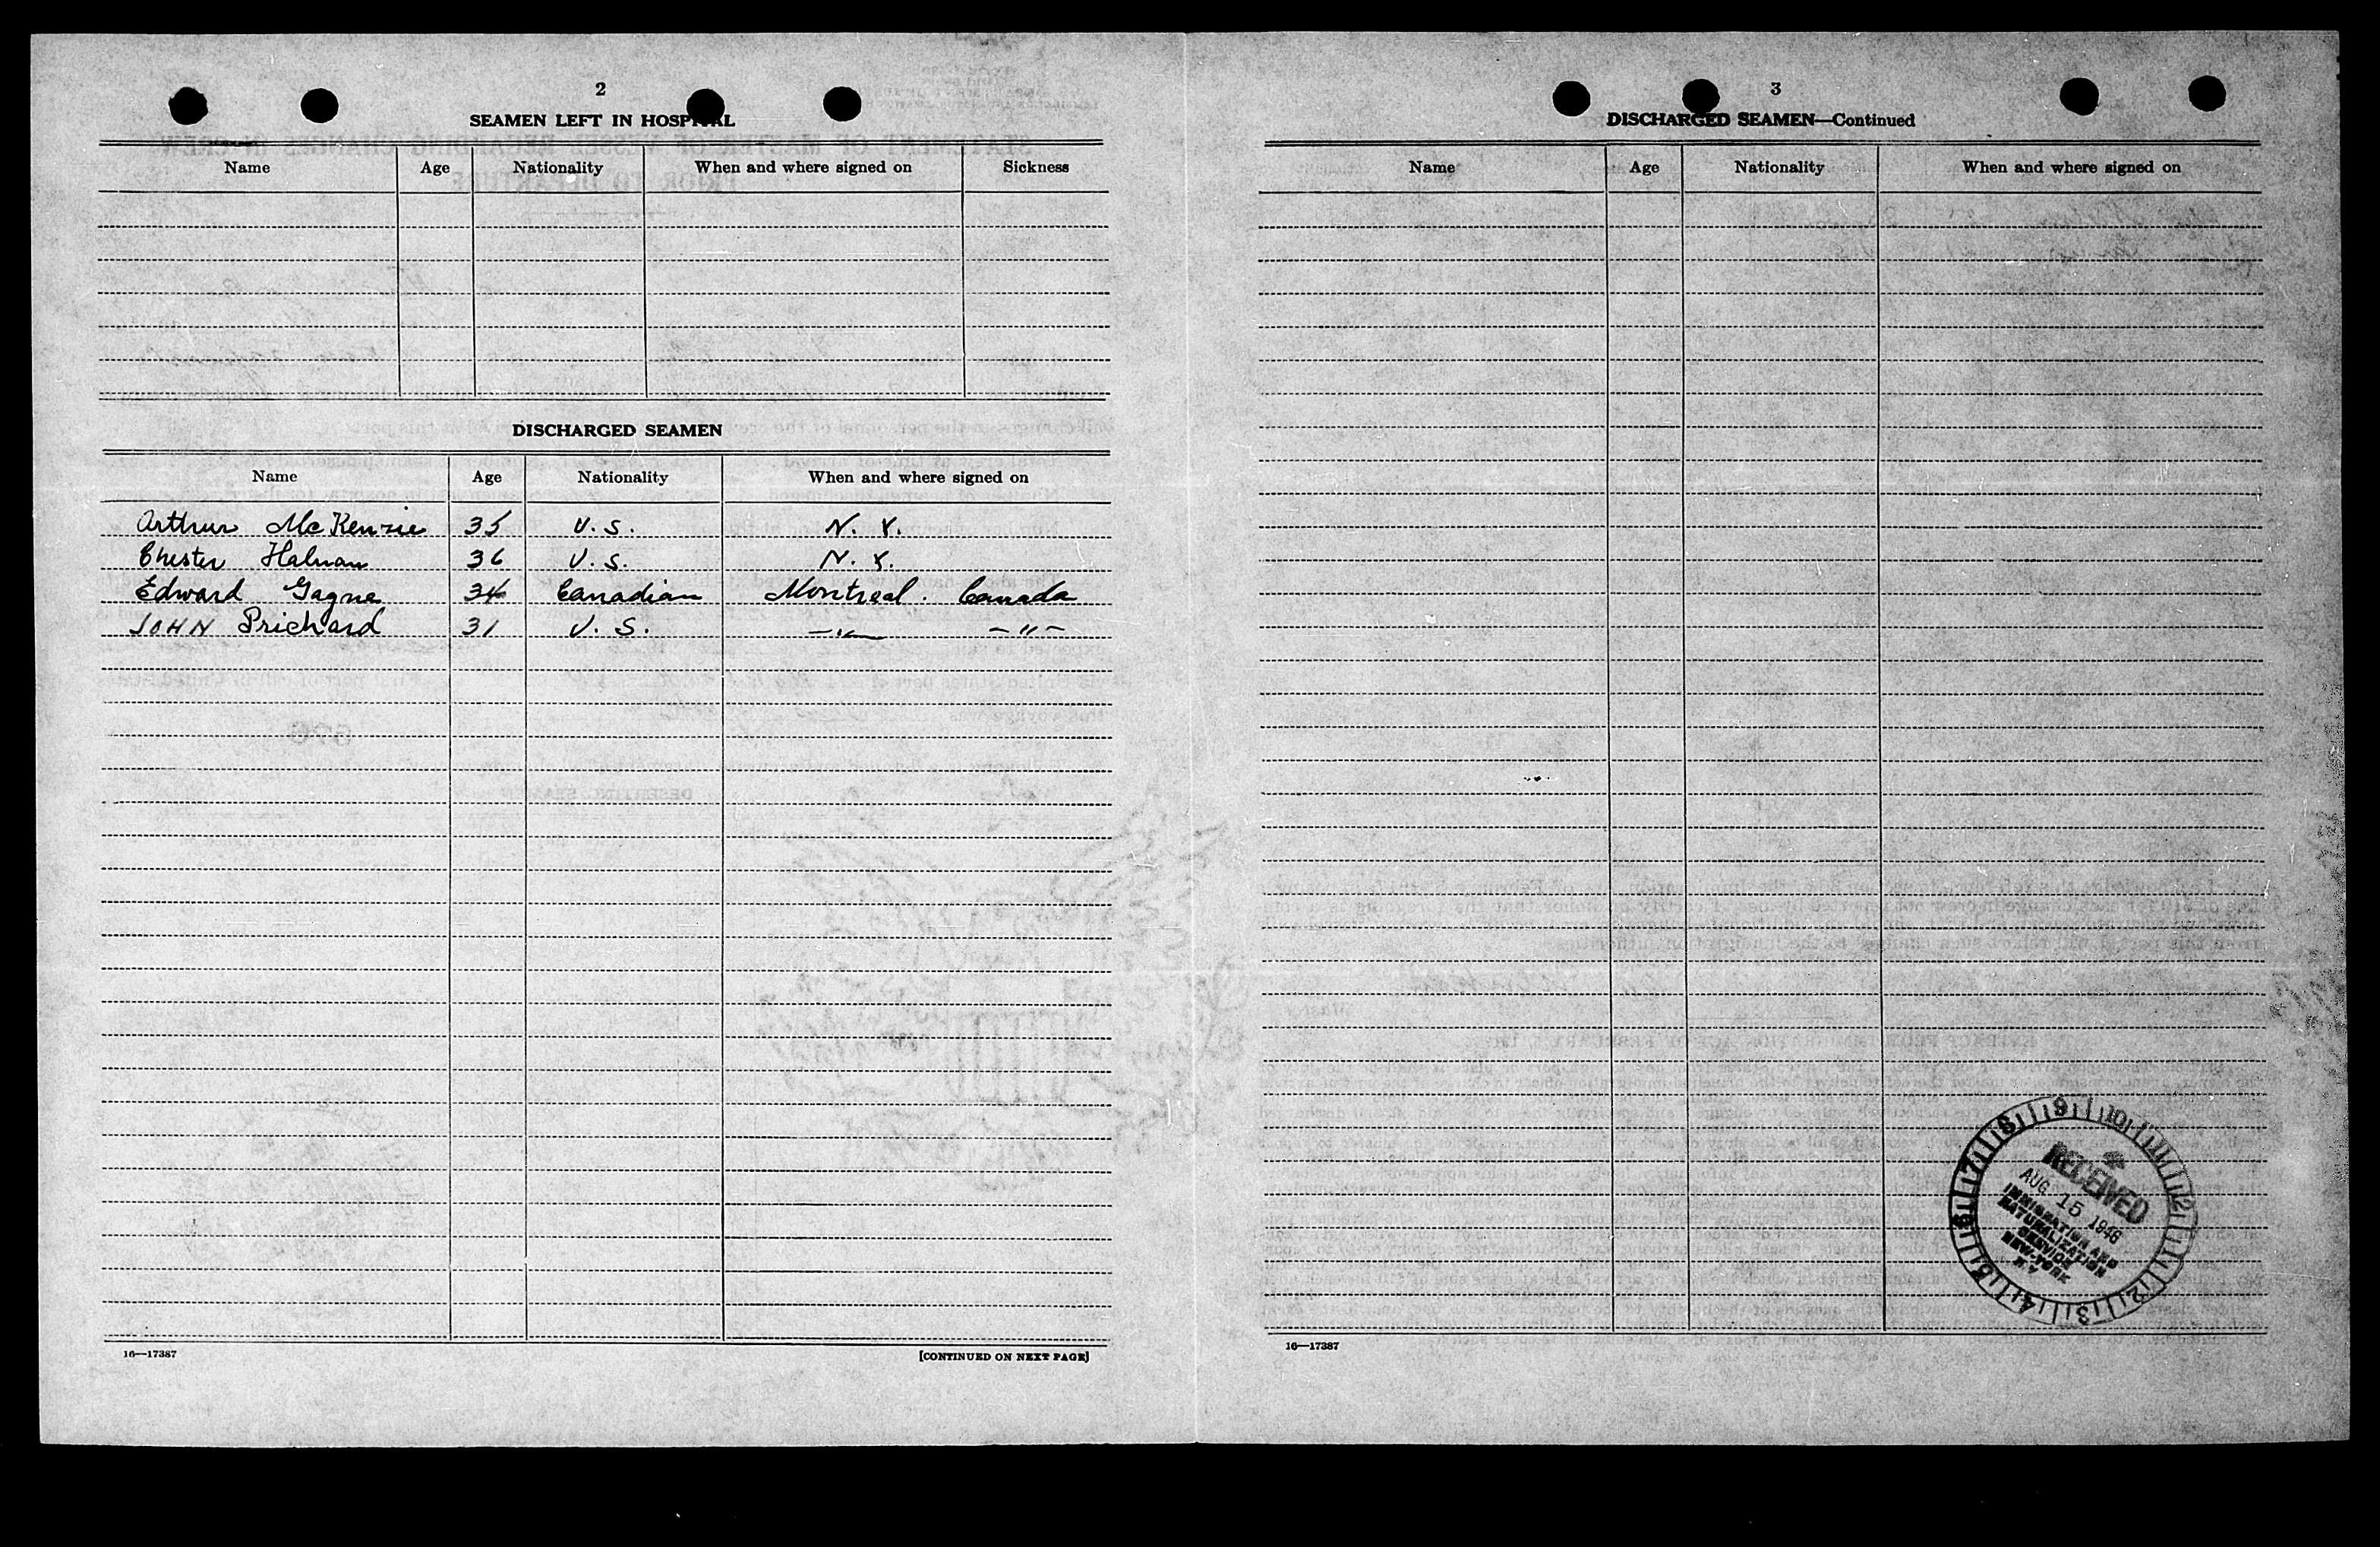 2
SEAMEN LEFT IN HOSPITAL
Name Age Nationality When and where signed on Sickness
DISCHARGED SEAMEN
Name Age Nationality When and where signed on
Arthur McKenzie 35 U.S. N.Y.
Chester Halman 36 U.S. N.Y.
Edward Gagne 34 Canadian Montreal. Canada
JOHN Prichard 31 U.S. —"— —"—
16—17387 [CONTINUED ON NEXT PAGE]
3
DISCHARGED SEAMEN—Continued
Name Age Nationality When and where signed on
RECEIVED
AUG 15 1946
IMMIGRATION AND
NATURALIZATION
SERVICE
NEW-YORK
N.Y
16—17387